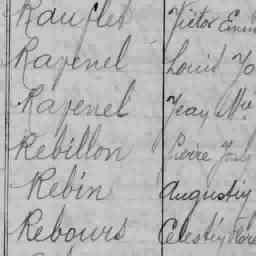 Rauflet Victor
Ravenel Louis
Ravenel Jean Mie
Rebillon Pierre
Rebin Augustin
Rebours Célestin